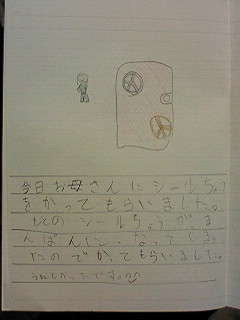 今日お母さんにシールちょう
をかってもらいました。
もとのシールちょうが、ま
んぱんに、なってしまっ
たのでかってもらいました。
うれしかったです。